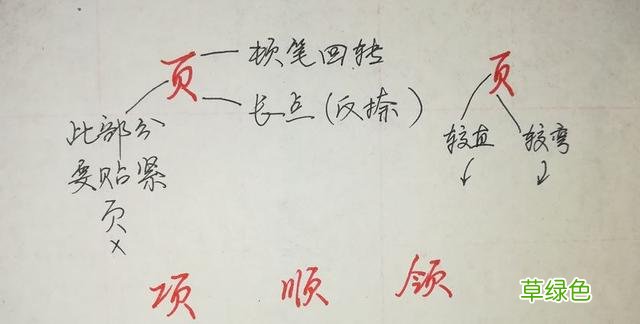 页
顿笔回转
长点(反捺)
此部分
要贴紧
页
×
页
较直
较弯
项 顺 领
草绿色